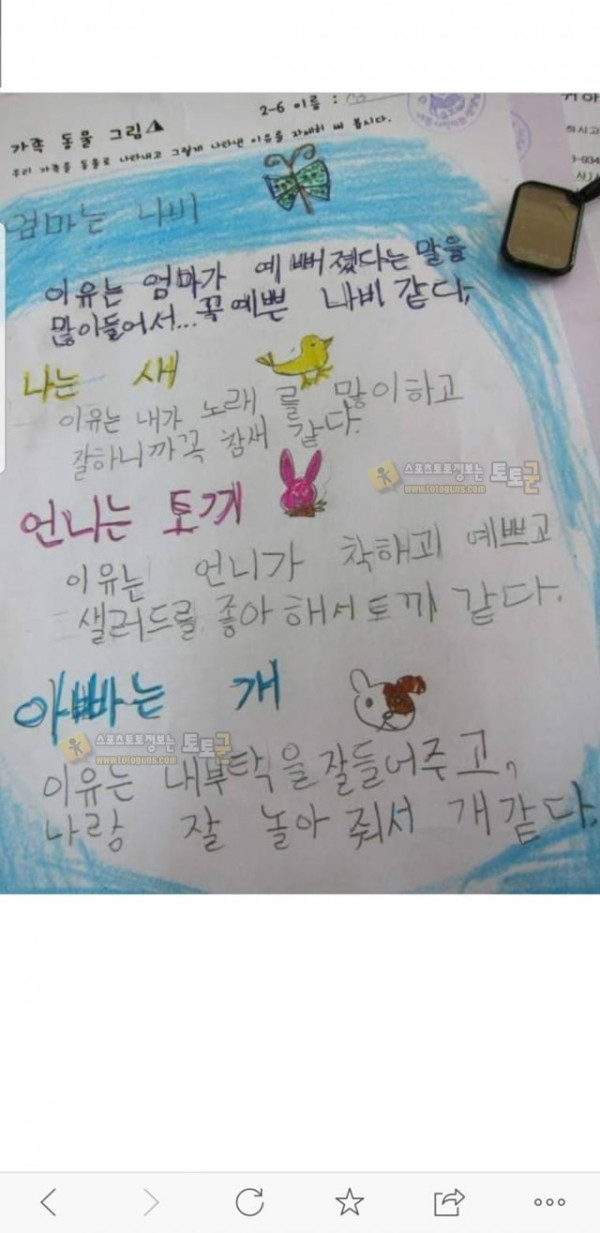 2-6 이름 :
가족 동물 그림
우리 가족을 동물로 나타내고 그렇게 나타낸 이유를 자세히 써 봅시다.
엄마는 나비
이유는 엄마가 예뻐졌다는 말을
많이들어서... 꼭예쁜 나비 같다,
나는 새
이유는 내가 노래 를 많이하고
잘하니까꼭 참새 같다.
스포츠토토정보는 토토군
www.totoguns.com
언니는 토끼
이유는 언니가 착해괴 예쁘고
샐러드를 좋아 해서 토끼 같다.
아빠는 개
스포츠토토정보는 토토군
www.totoguns.com
이유는 내부탁을 잘들어주고,
나랑 잘 놀아 줘서 개같다.